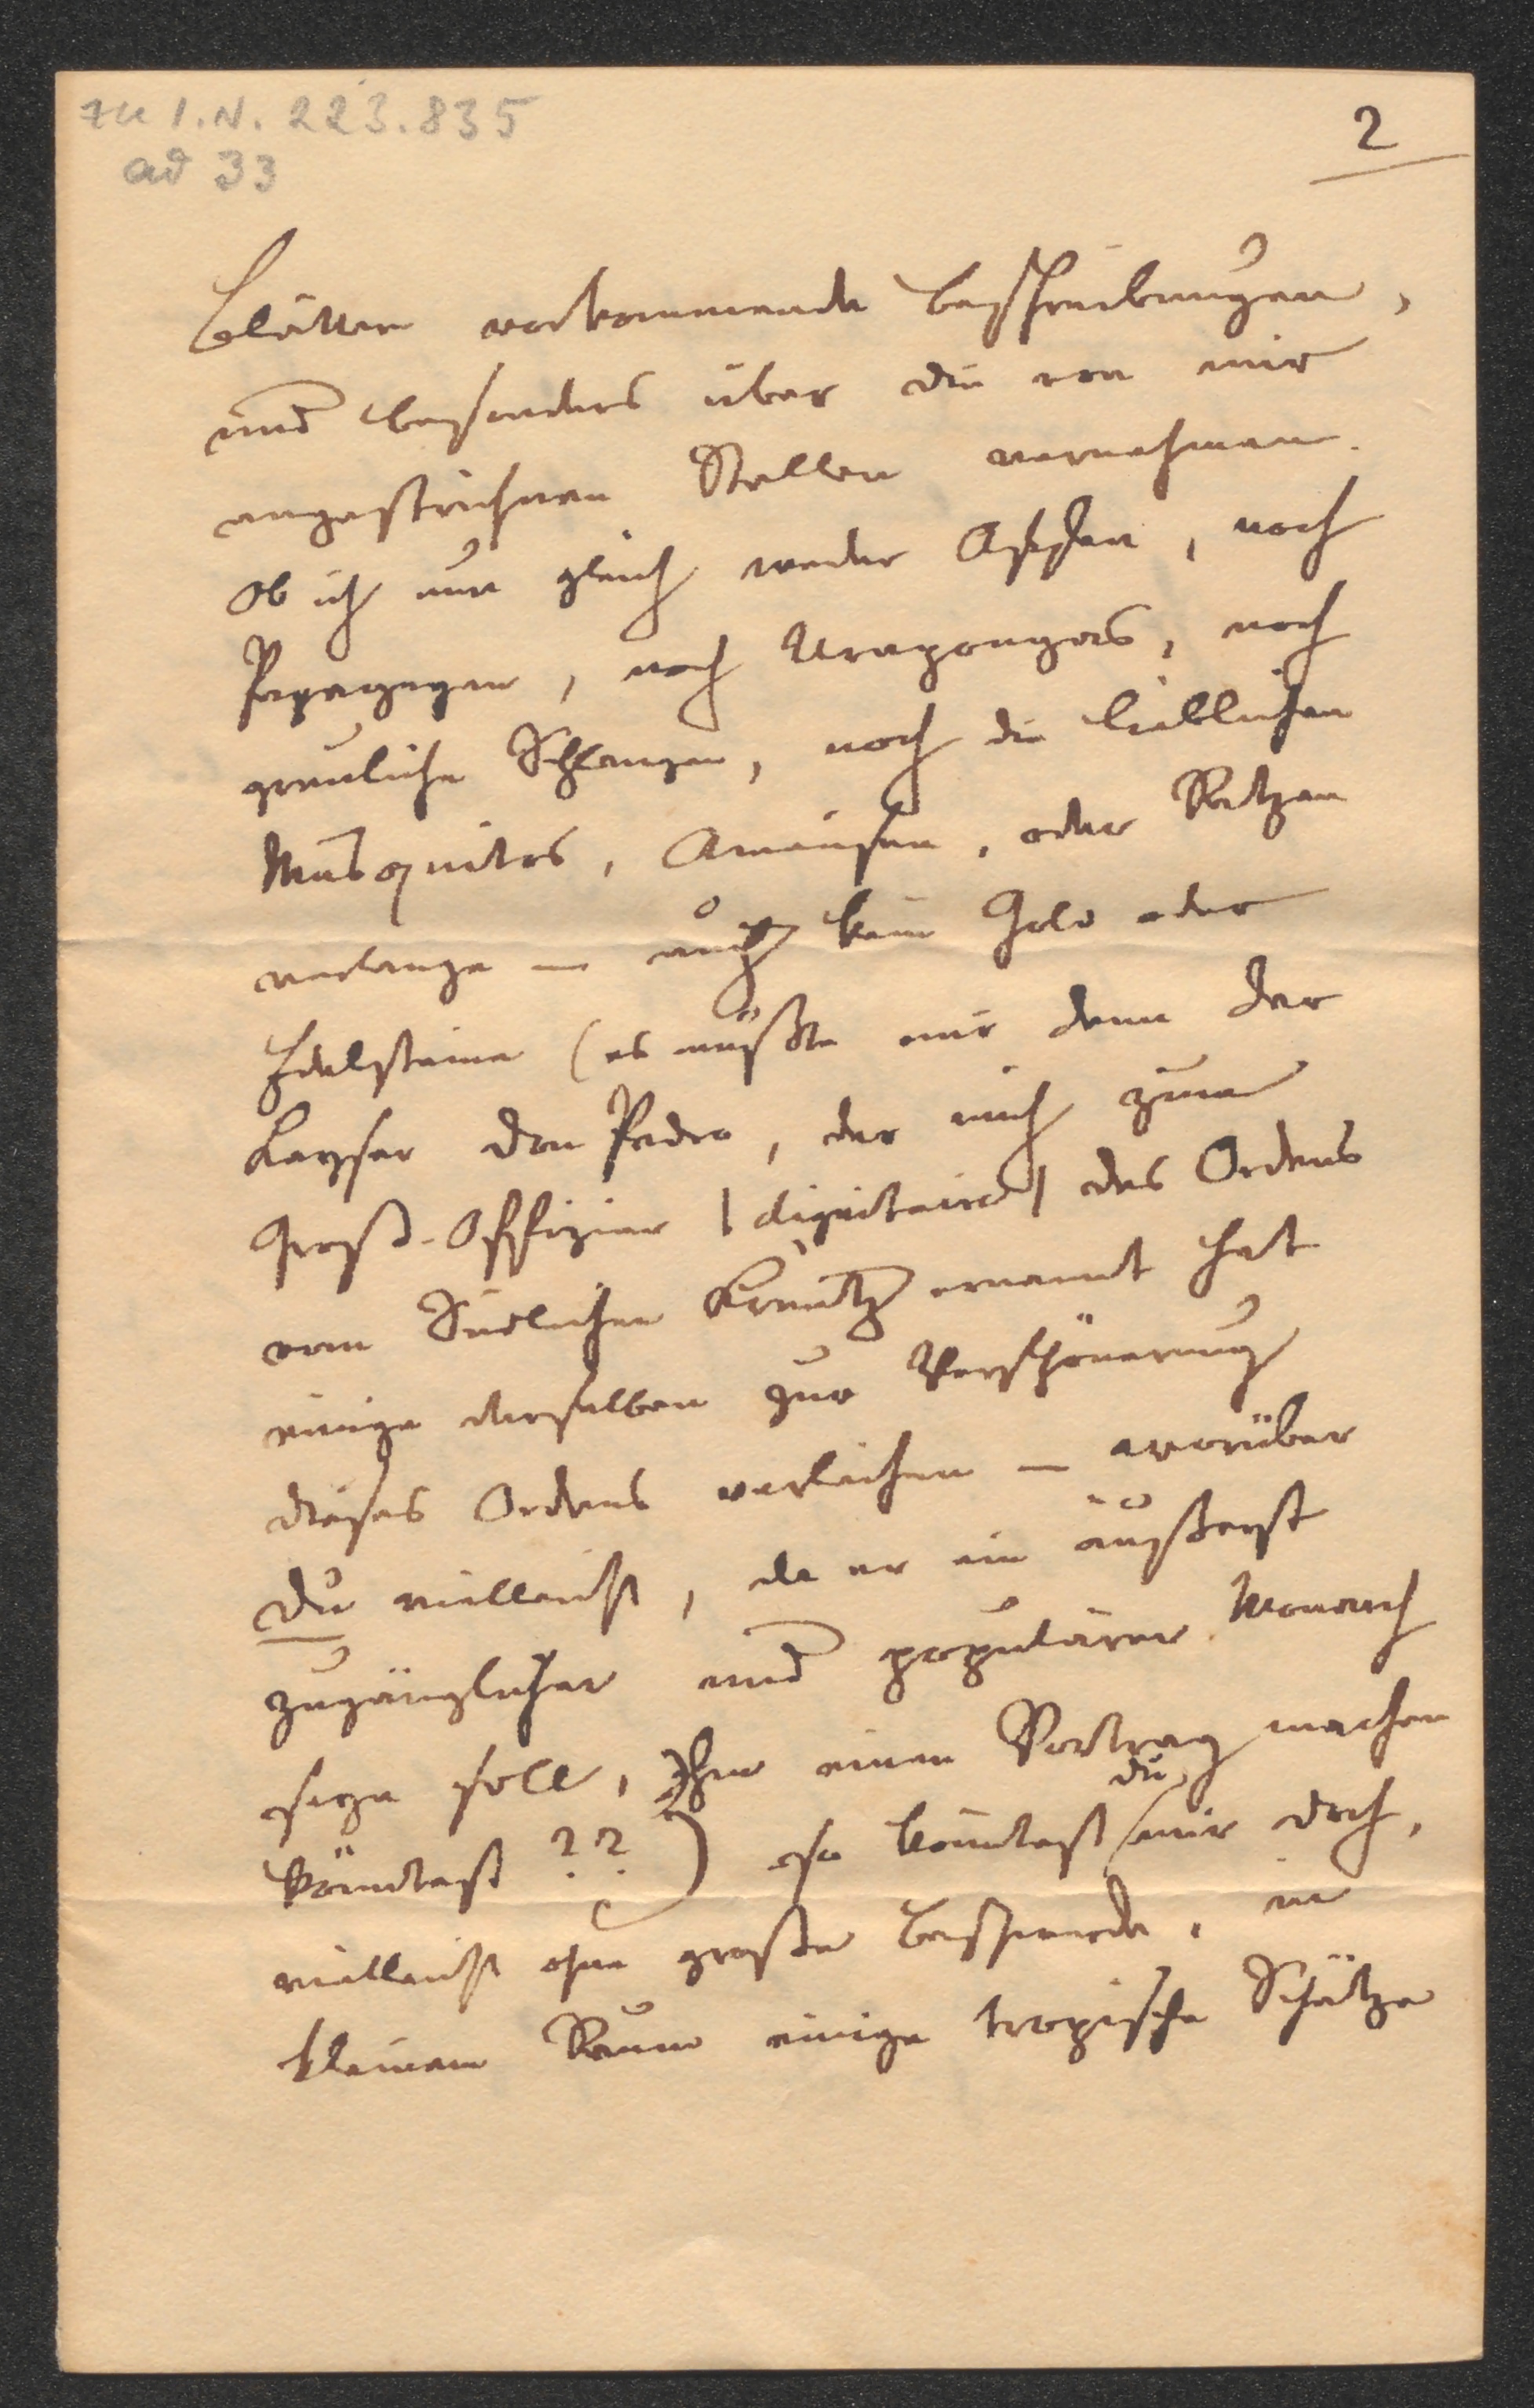 zu I.N. 223.835
ad 33
2
Blätter vorkommende Beschreibungen,
und besonders über die von mir
angestrichnen Stellen vernehmen.
Ob ich nun gleich weder Affen, noch
Papageyen, noch Urapongas, noch
greuliche Schlangen, noch die lieblichen
Musquitos, Ameisen, oder Ratzen
verlange – auch kein Gold oder
Edelsteine (es müßte mir denn der
Kayser Don Pedro, der mich zum
Groß-Offizier |dignitaire| des Ordens
vom Südlichen Kreutz ernannt hat
einige derselben zur Verschönerung
dieses Ordens verleihen – worüber
Du vielleicht, da er ein äußerst
zugänglicher und populärer Monarch
seyn soll, Ihm einen Vortrag machen
könntest ??) so könntest du mir doch,
vielleicht ohne große Beschwerde, in
kleinem Raum einige tropische Schätze